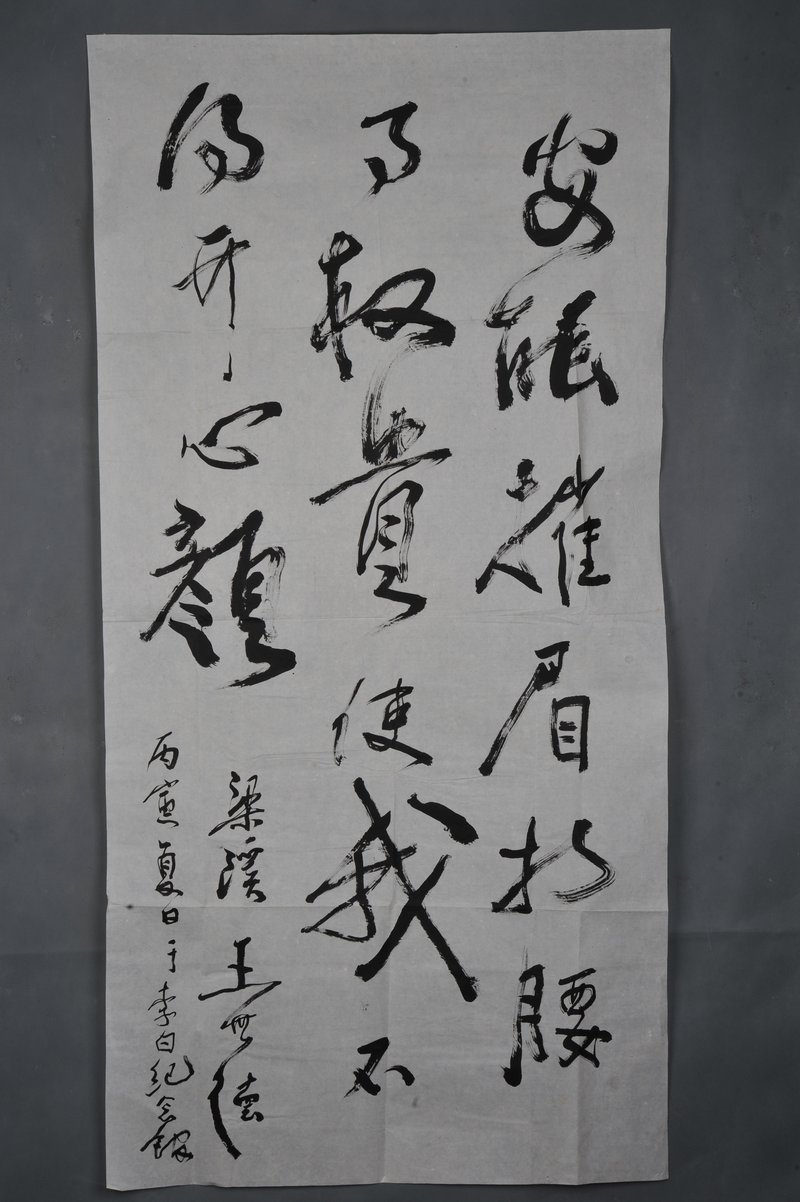 安能摧眉折腰
事权贵使我不
得开心颜
梁溪王世德
丙寅夏日于李白纪念馆